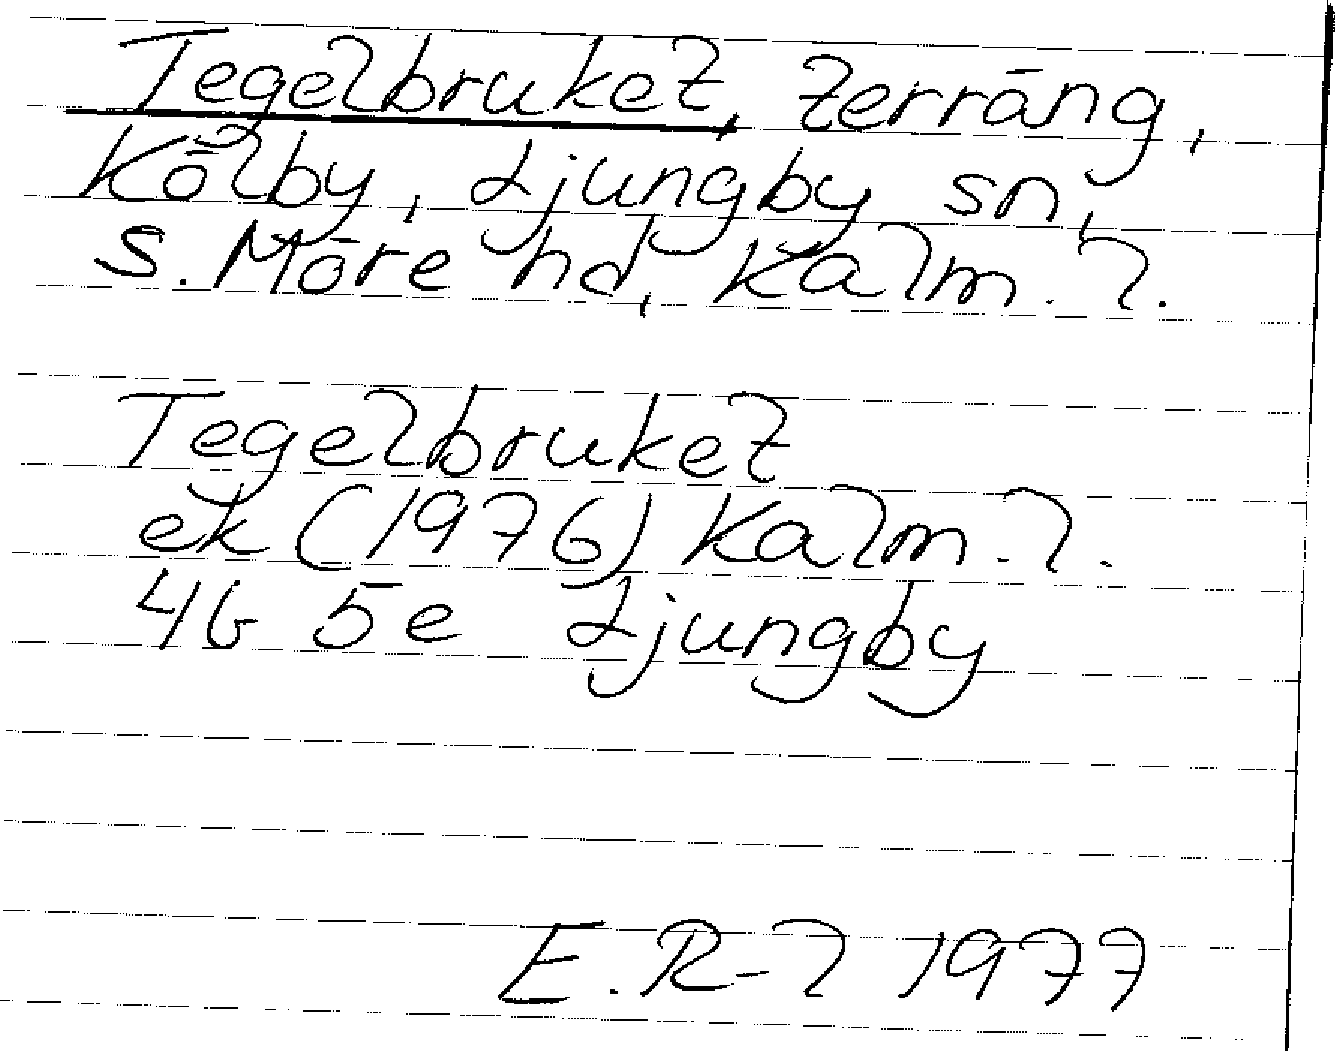 Tegelbruket, terräng,
Kölby, Ljungby sn,
S. Möre hd, Kalm. l.
Tegelbruket
ek (1976) Kalm. l.
4G 5e Ljungby
E. R-l 1977